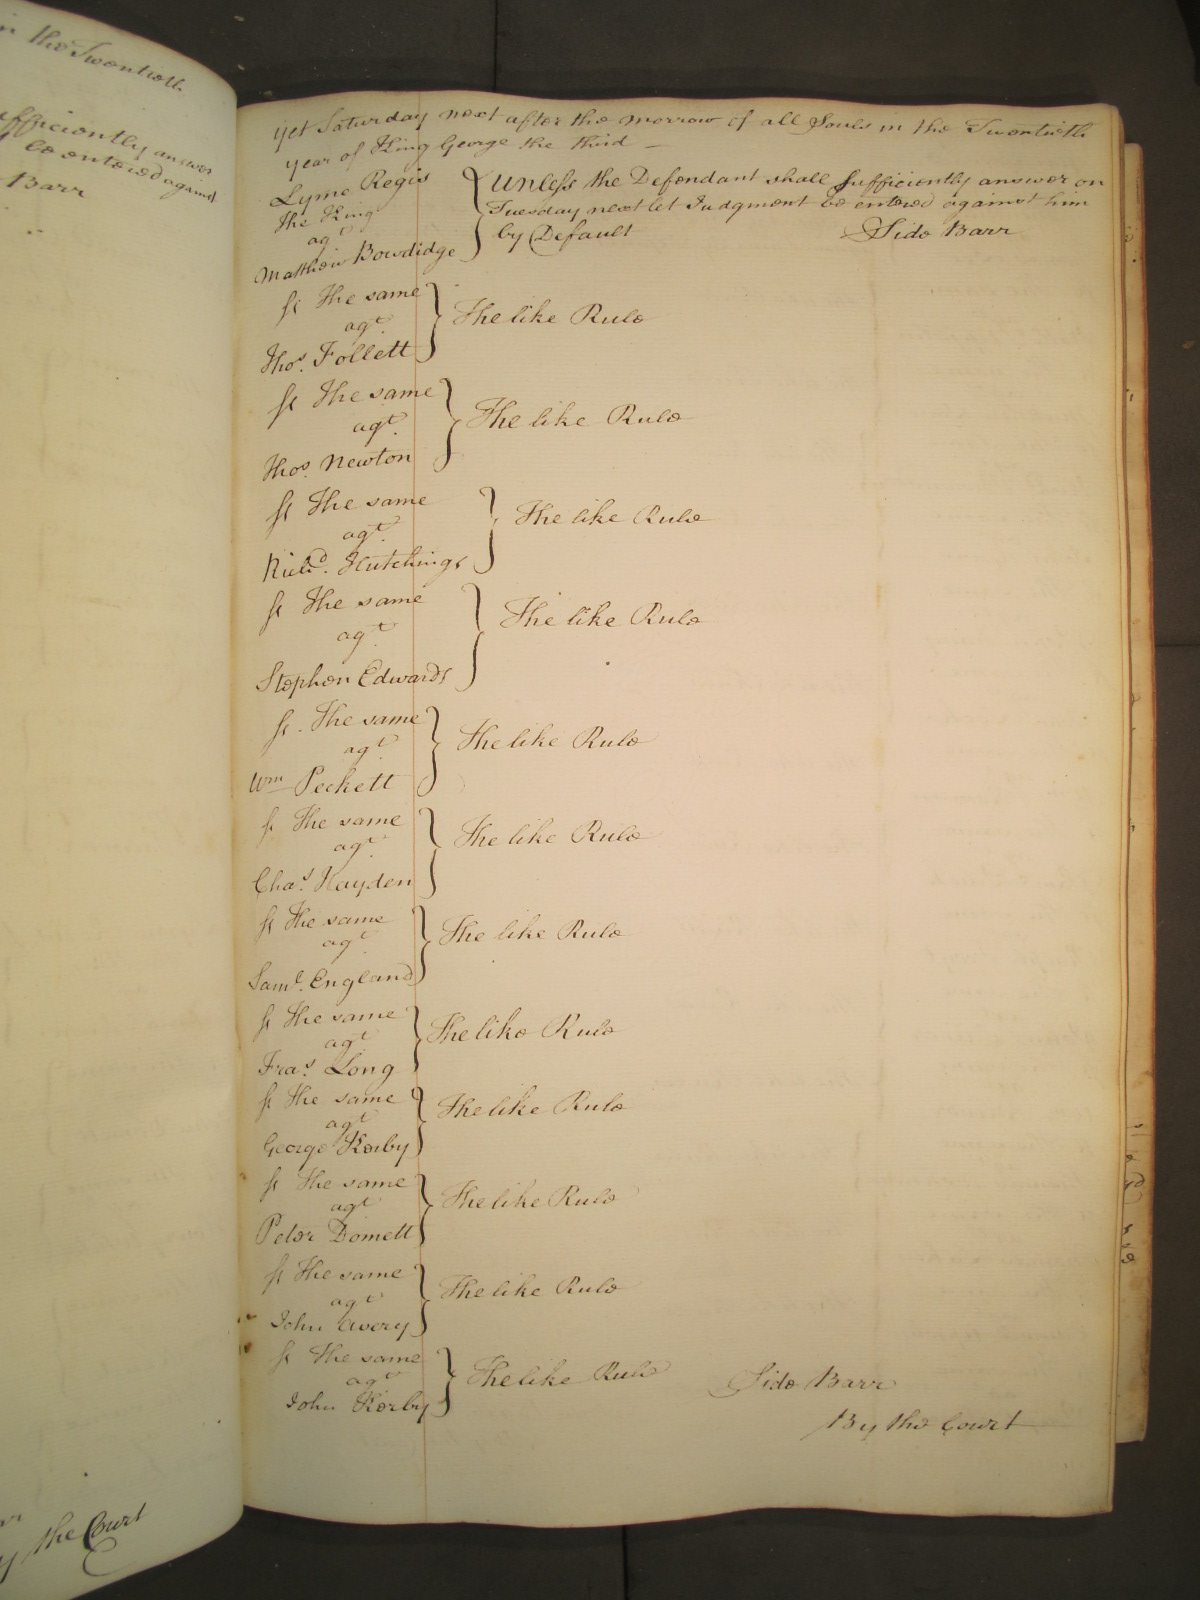 in the Twentieth
sufficiently answer
be entered against
Barr
the Court
yet Saturday next after the morrow of all Souls in the Twentieth
year of King George the third
Lyme Regis
The King
agt
Matthew Bowdidge
Unless the Defendant shall sufficiently answer on
Tuesday next let Judgment be entered against him
by Default
Side Barr
ss The same
agt.
Thos. Follett
The like Rule
ss The same
agt.
Thos. Newton
The like Rule
ss The same
agt.
Richd. Hutchings
The like Rule
ss The same
agt
Stephen Edwards
The like Rule
ss. The same
agt
Wm Peckett
The like Rule
ss The same
agt.
Chas. Hayden
The like Rule
ss The same
agt
Saml. England
The like Rule
ss The same
agt
Fras. Long
The like Rule
ss The same
agt
George Kerby
The like Rule
ss The same
agt
Peter Domett
The like Rule
ss The same
agt
John Avery
The like Rule
ss The same
agt
John Kerby
The like Rule
Side Barr
By the Court